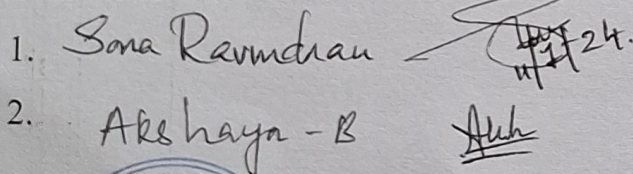 1. Sona Ravindran
2. Akshaya - B